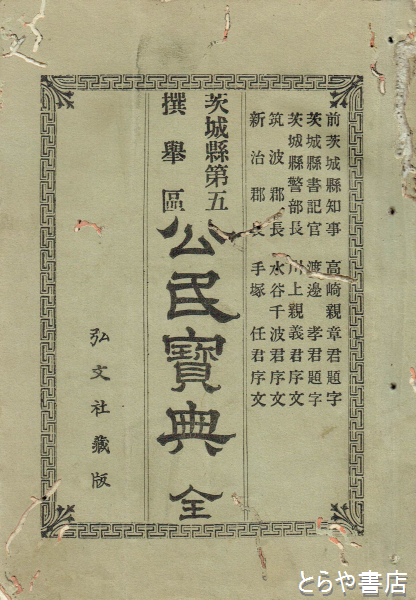 前茨城縣知事 高崎親章君題字
茨城縣書記官 渡邊孝君題字
茨城縣警部長 川上親義君序文
筑波郡長 水谷千波君序文
新治郡長 手塚任君序文
茨城縣第五
撰擧區
公民寶典 全
弘文社藏版
とらや書店